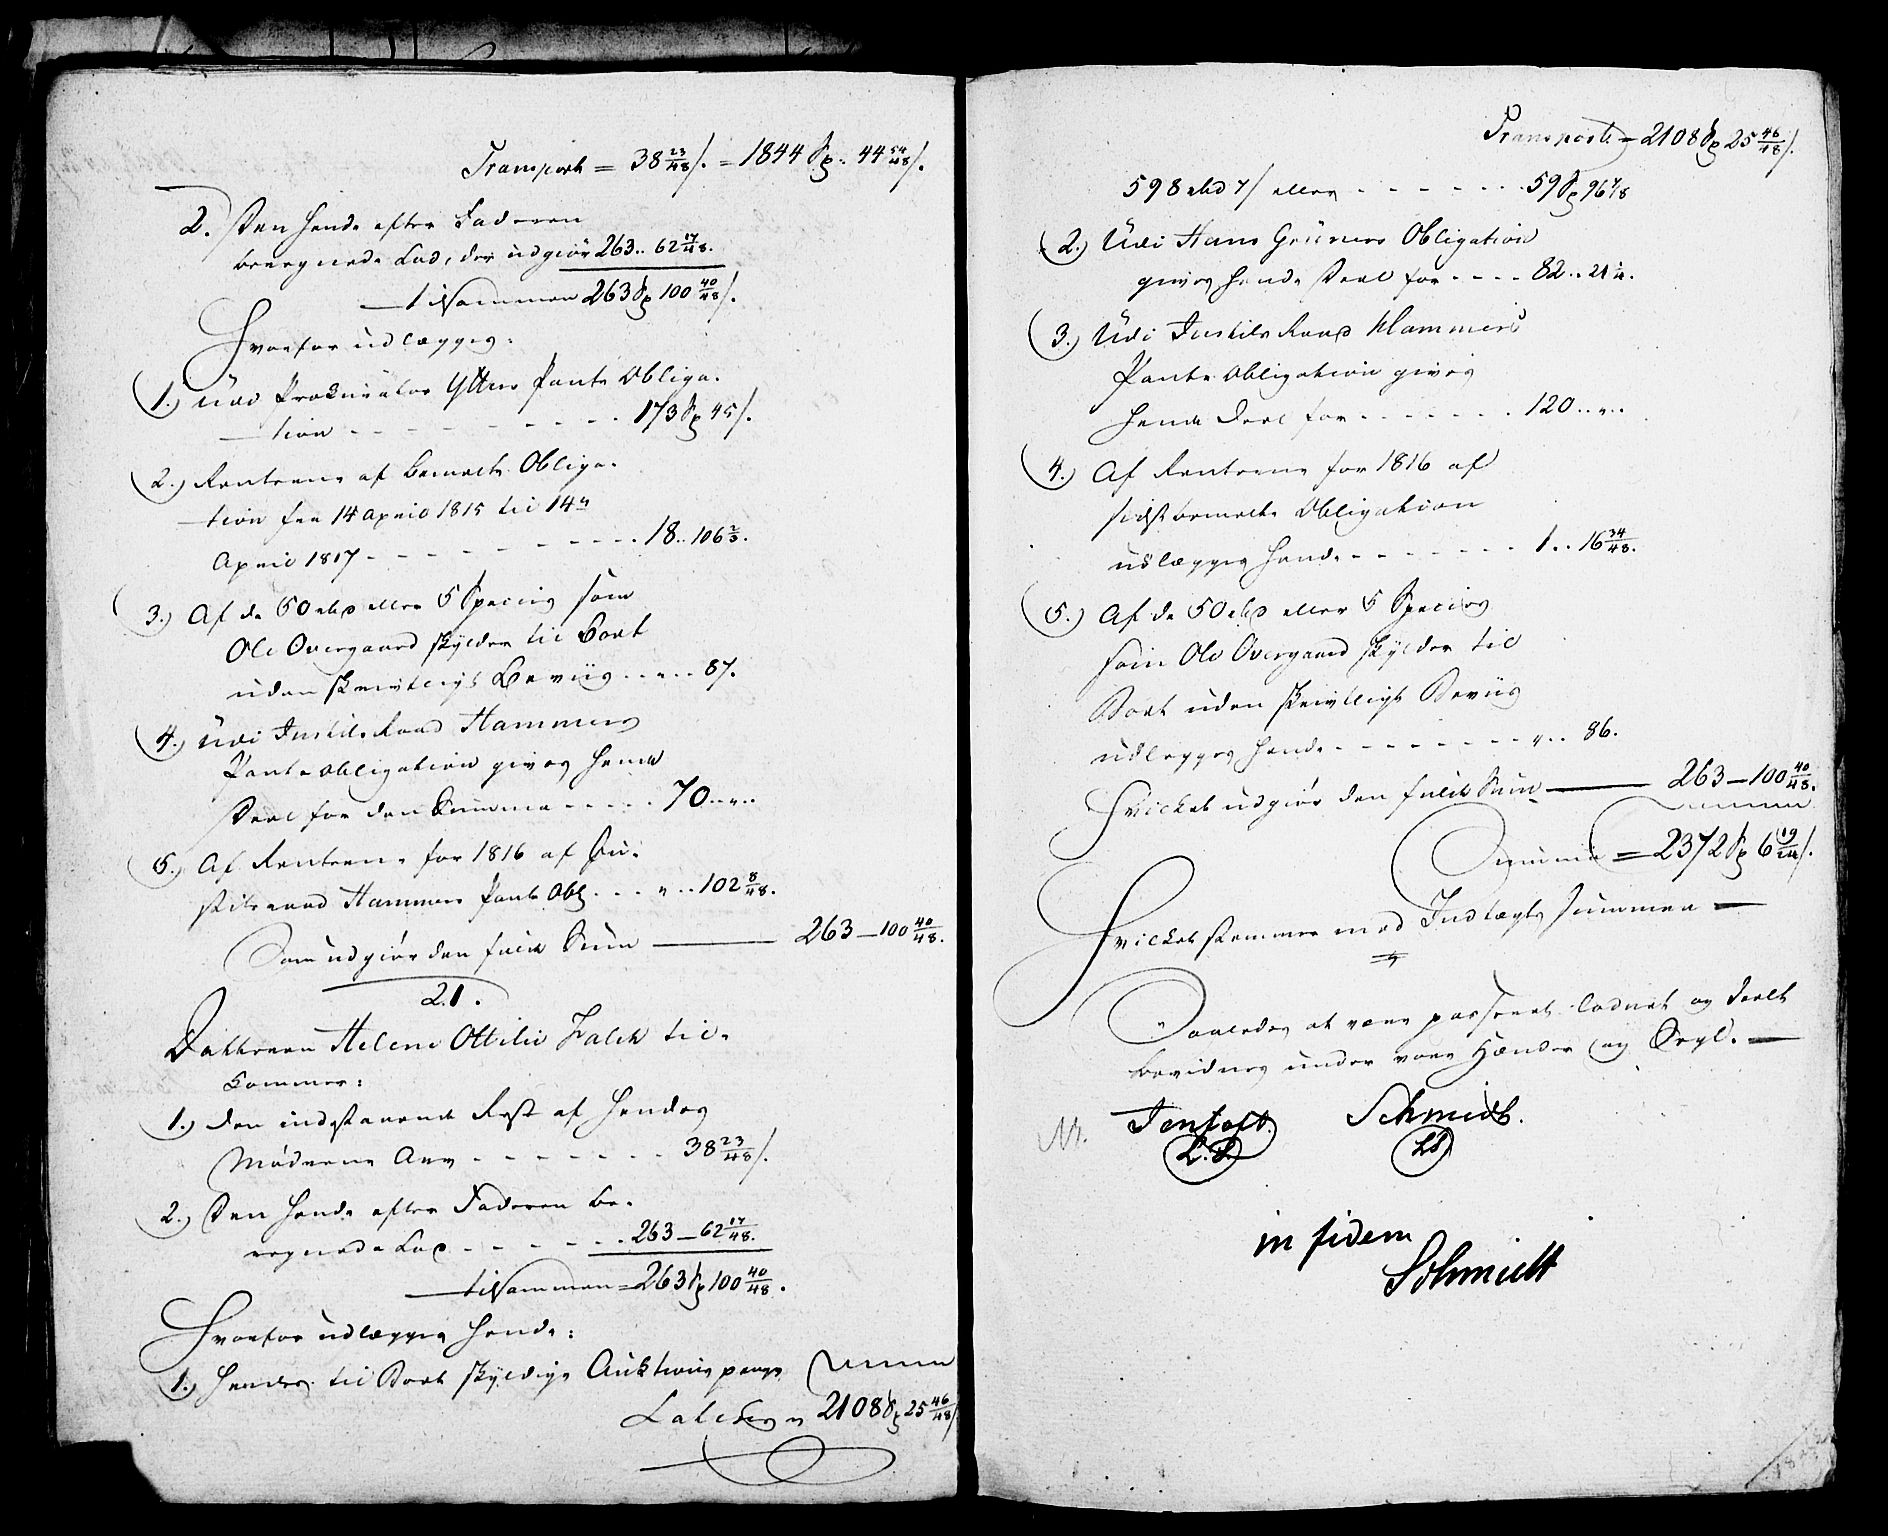 Transport = 38 23/48 /. = 1844 Sp. 44 54/48 /.
2. Den hende efter Faderen
beregnede Lod, der udgiør 263.. 62 17/48.
tilsammen 263 Sp 100 40/48 /.
Hvorfor udlægges:
1.) Udi Prokurator Ytters Pante Obliga-
tion - - - - - - - 173 Sp 45 /.
2.) Renterne af bemelte Obliga-
tion fra 14 April 1815 til 14de
April 1817 - - - - - - - 18.. 106 2/3.
3.) Af de 50 rbd eller 5 Species som
Ole Overgaard skylder til Boet
uden skrivtligt Beviis . . „ . . 87.
4.) Udi Justits Raad Hammers
Pante obligation gives hende
Deel for den Summa - - - - - 70..„..
5. Af Renterne for 1816 af Ju-
stitsraad Hammers Pante Obl. . . „ . . 102 8/48.
Som udgiør den fulde Sum — 263 — 100 40/48.
21.
Datteren Helene Ottilie Falch til-
kommer:
1.) Den indestaaende Rest af hendes
Mødrene Arv - - - - - - - 38 23/48 /.
2.) Den hende efter Faderen be-
regnede Lod - - - - - - 263 — 62 17/48.
tilsammen = 263 Sp 100 40/48.
Hvorfor udlægges hende:
1.) Hendes til Boet skyldige Auktions penge
Lateris „ 2108 Sp 25 46/48 /.
Transport = 2108 Sp 25 46/48 /.
598 rbd 7 / eller - - - - - - - 59 Sp 96 7/8
2.) Udi Hans Grüners Obligation
gives hende Deel for - - - - 82.. 21 1/4.
3.) Udi Justits Raad Hammers
Pante Obligation gives
hende Deel for - - - - - - - 120..„..
4.) Af Renterne for 1816 af
sidstbemelte Obligation
udlægges hende - - - - - - - 1.. 16 34/48.
5.) Af de 50 rbd eller 5 Species
som Ole Overgaard skylder til
Boet uden skrivtligt Beviis
udlægges hende - - - - - - - - „ .. 86.
Hvilket udgiør den fulde Sum — 263 — 100 40/48.
Summa = 2372 Sp 6 19/24 /.
Hvilket stemmer med Indtægts summen —
Saaledes at være passeret lodnet og deelt
bevidnes under vore Hænder og Segl. —
Jenssen. Schmidt.
L.S. LS
in fidem
Schmidt